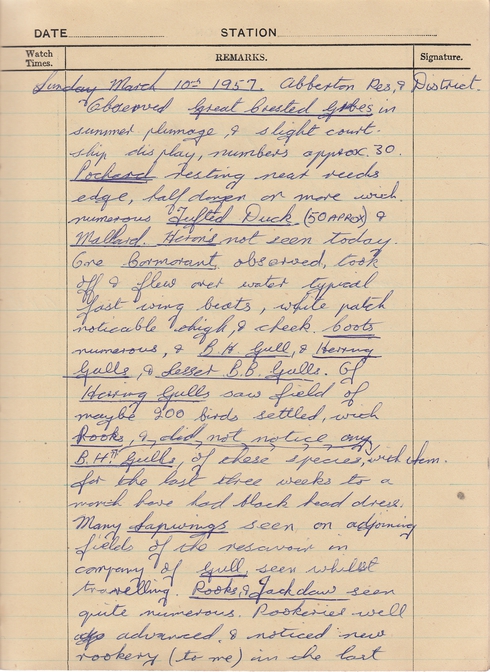 DATE STATION
Watch Times. REMARKS. Signature.
Sunday March 10th 1957. Abberton Res, & District.
Observed Great Crested Grebes in
summer plumage, & slight court-
ship display, numbers approx 30.
Pochard resting near reeds
edge, half dozen or more with
numerous Tufted Duck (50 APROX) &
Mallard. Heron's not seen today.
One Cormorant, observed, took
off & flew over water typical
fast wing beats, white patch
noticable thigh, & cheek. Coots
numerous, & B.H. Gull, & Herring
Gulls, & Lesser B.B. Gulls. Of
Herring Gulls saw field of
maybe 200 birds settled, with
Rooks, & did not notice any
B.H. Gulls, of these species, with them.
for the last three weeks to a
month have had black head dress.
Many Lapwings seen on adjoining
fields of the resavoir in
company of Gull, seen whilst
travelling. Rooks, & Jackdaw seen
quite numerous. Rookeries well
advanced, & noticed new
rookery (to me) in the last